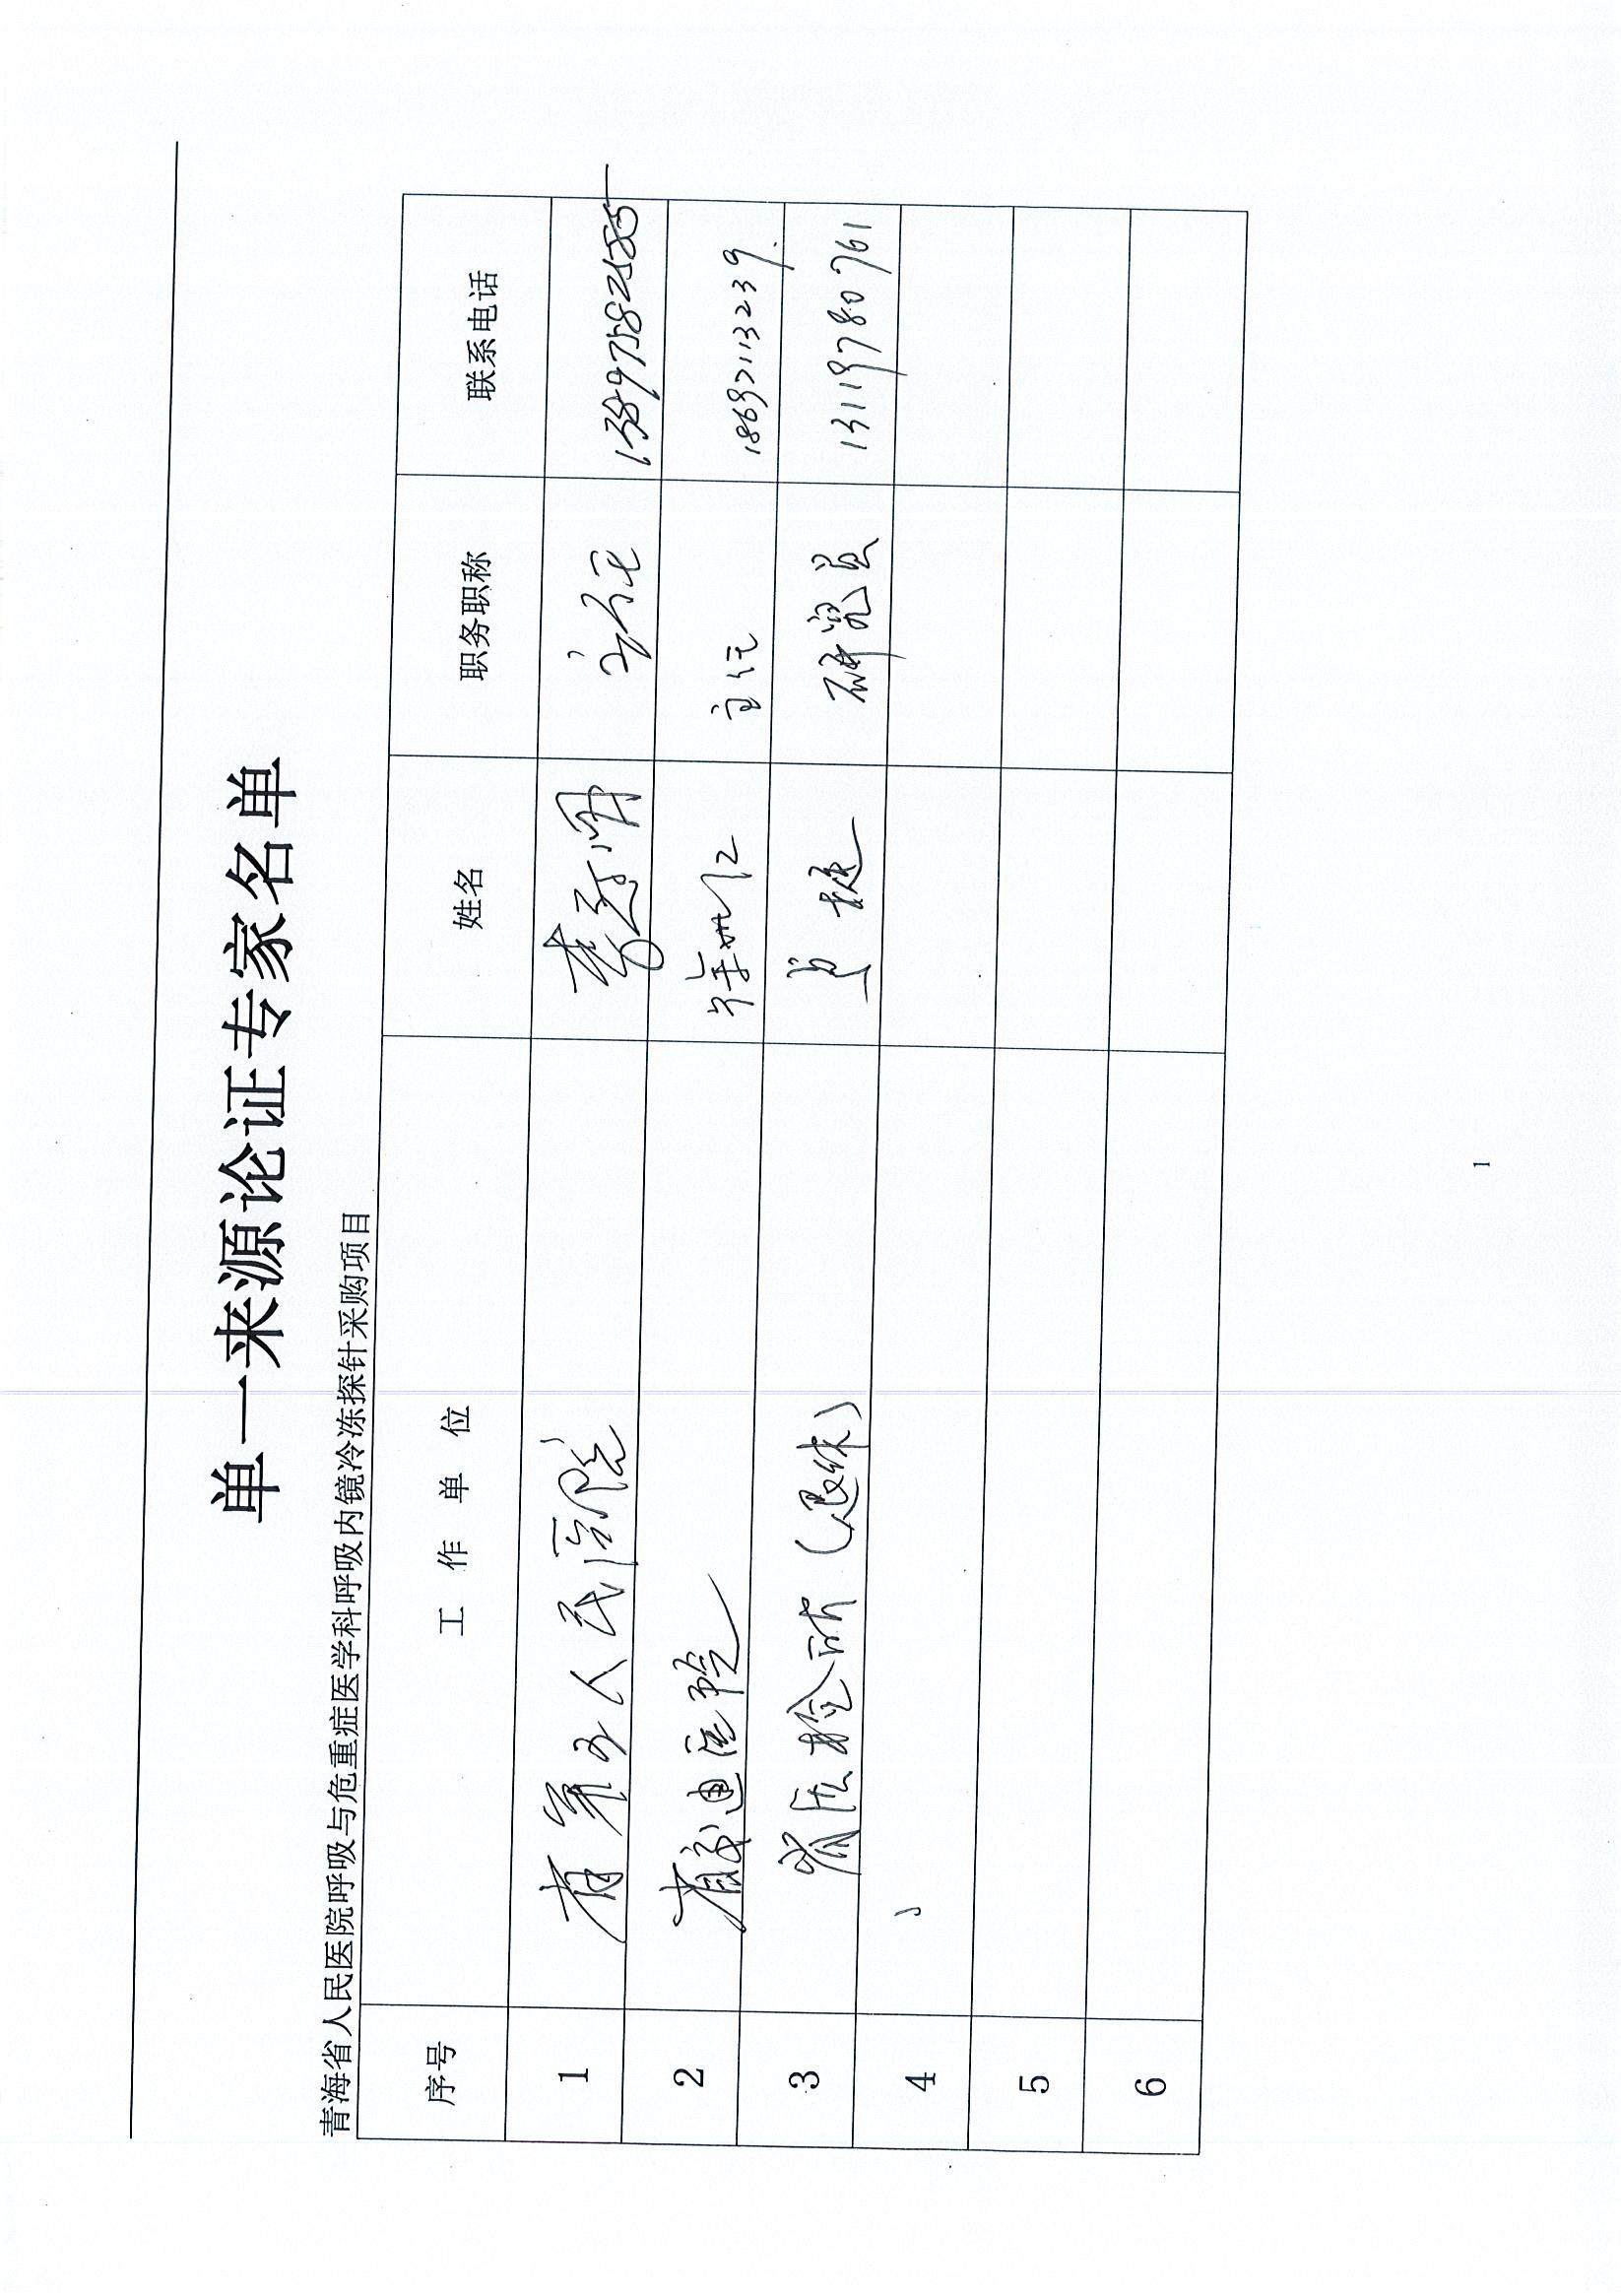 单一来源论证专家名单
青海省人民医院呼吸与危重症医学科呼吸内镜冷冻探针采购项目
序号 工作单位 姓名 职务职称 联系电话
1 人民医院 主任
2 医院 主任 18697113239
3 省药检所（退休） 研究员 13119780761
4
5
6
1